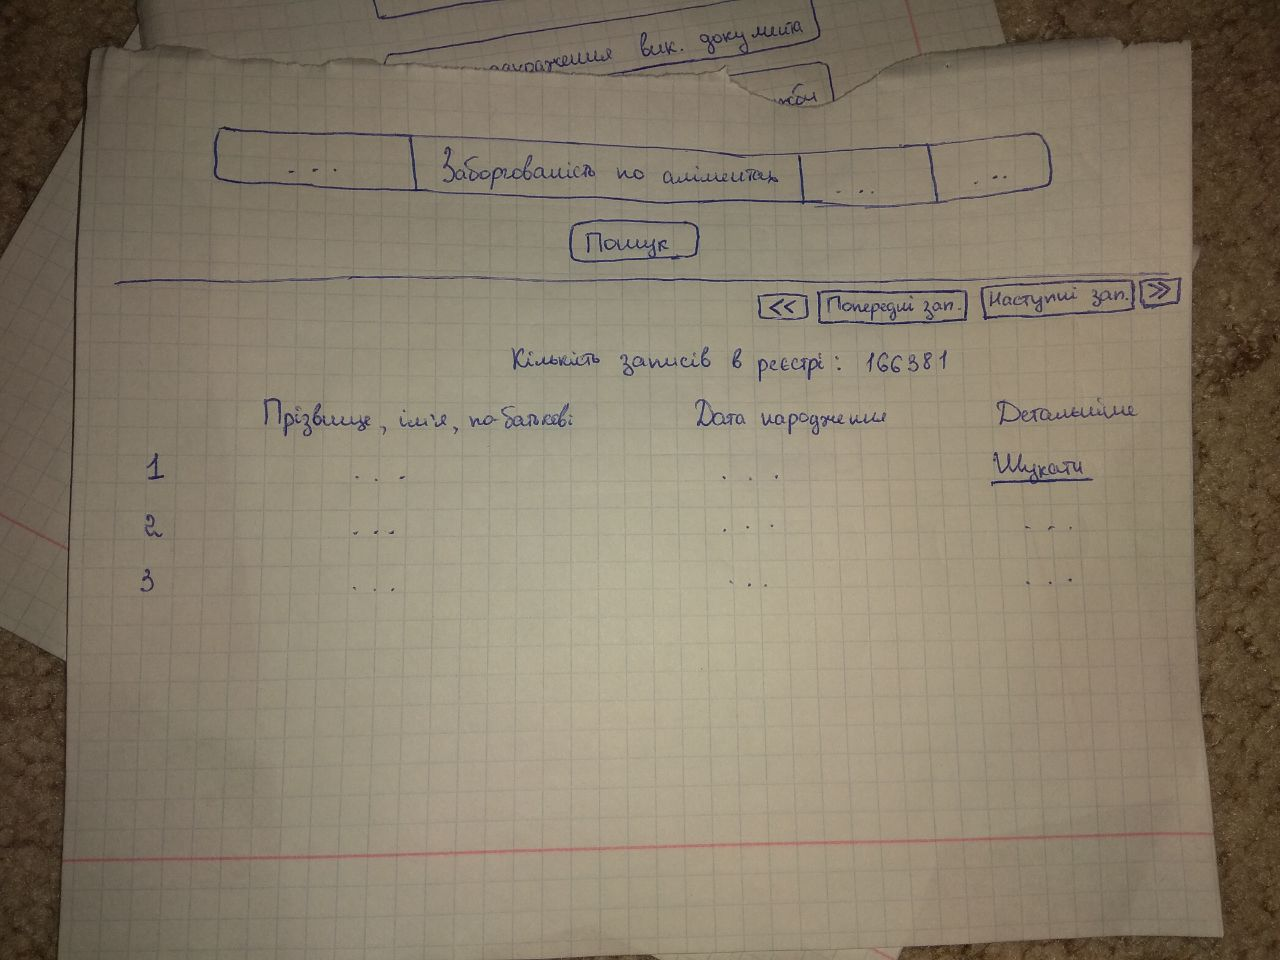 вик. документа
жби
... Заборгованість по аліментах ... ...
Пошук
<< Попередні зап. Наступні зап. >>
Кількість записів в реєстрі: 166381
Прізвище, ім'я, по-батькові Дата народження Детальніше
1 ... ... Шукати
2 ... ... ...
3 ... ... ...